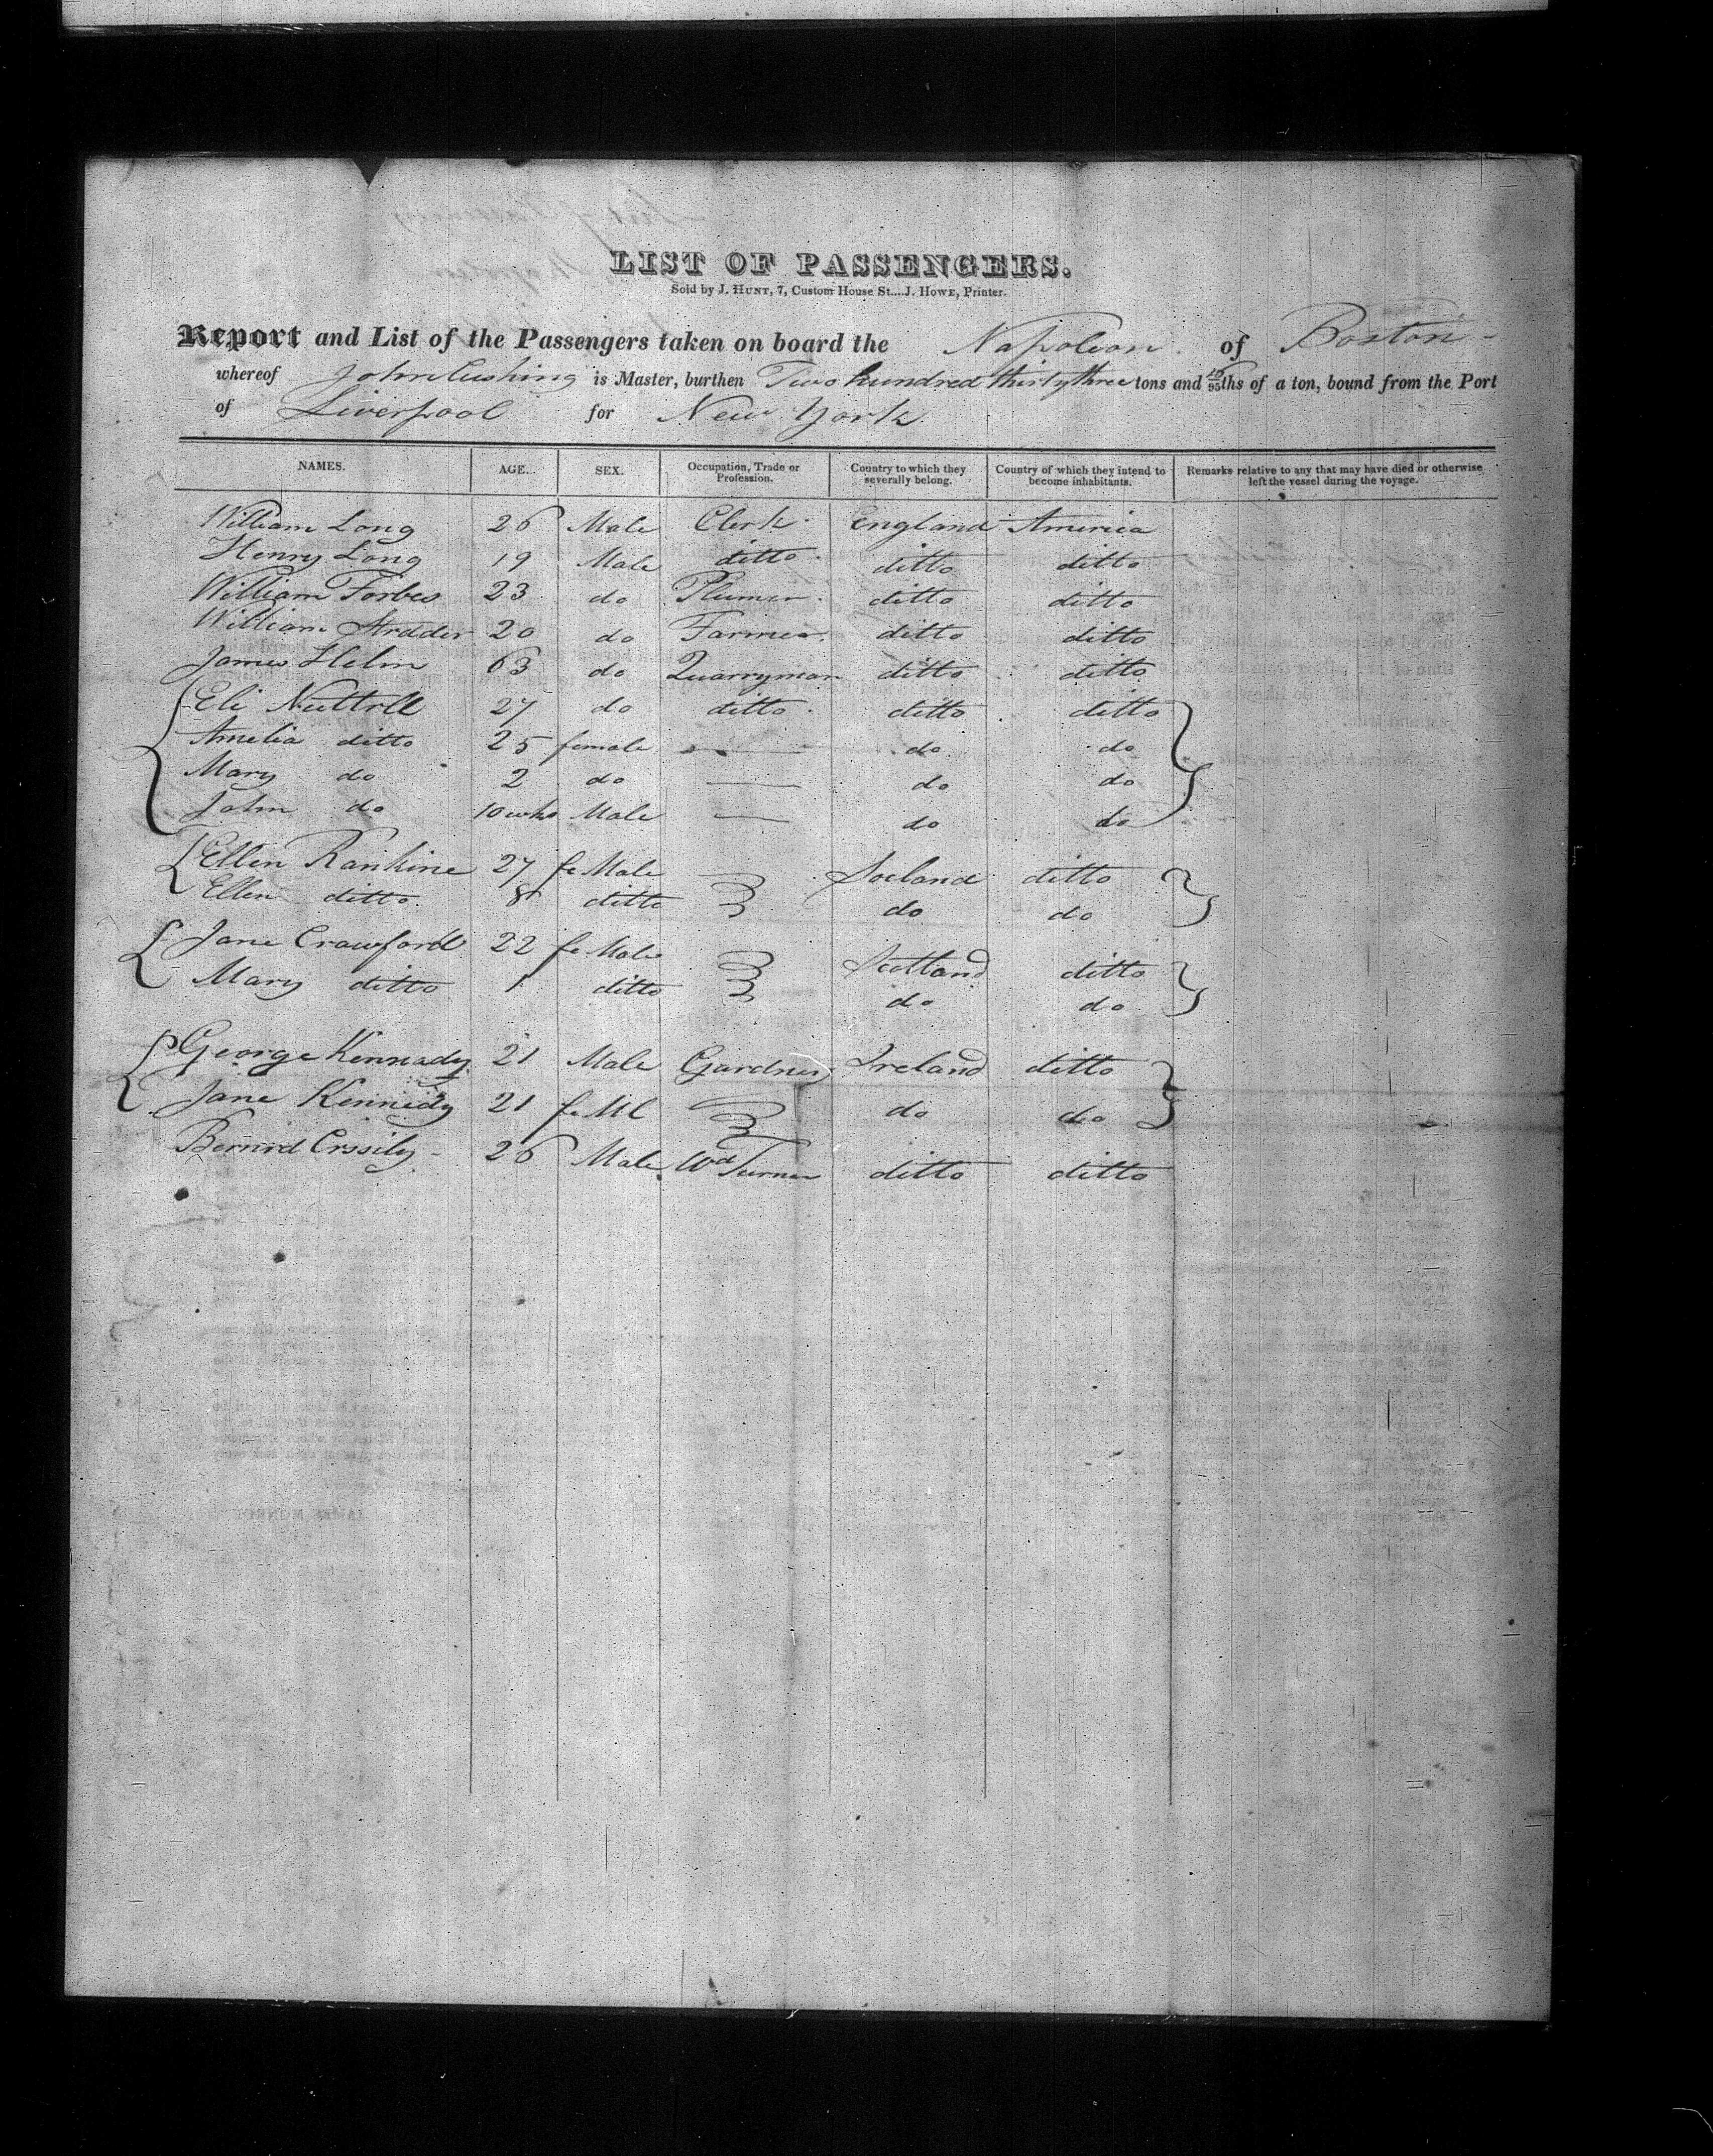 LIST OF PASSENGERS.
Sold by J. HUNT, 7, Custom House St....J. HOWE, Printer.
Report and List of the Passengers taken on board the Napoleon of Boston -
whereof John Cushing is Master, burthen Two hundred thirty three tons and 16/95ths of a ton, bound from the Port
of Liverpool for New York.
NAMES. AGE. SEX. Occupation, Trade or Profession. Country to which they severally belong. Country of which they intend to become inhabitants. Remarks relative to any that may have died or otherwise left the vessel during the voyage.
William Long 26 Male Clerk England America
Henry Long 19 Male ditto ditto ditto
William Forbes 23 do Plumer ditto ditto
William 20 do Farmer ditto ditto
James Helm 63 do Quarryman ditto ditto
Eli Nuttall 27 do ditto ditto ditto
Amelia ditto 25 female do do
Mary do 2 do do do
John do 10 wks Male do do
Ellen Rankine 27 fe Male ditto
Ellen ditto 8 ditto do do
Jane Crawford 22 fe Male Scotland ditto
Mary ditto 1 ditto do do
George Kennady 21 Male Gardner Ireland ditto
Jane Kennedy 21 fe Ml do do
Bernird 26 Male Wd Turner ditto ditto
JAMES MONROE